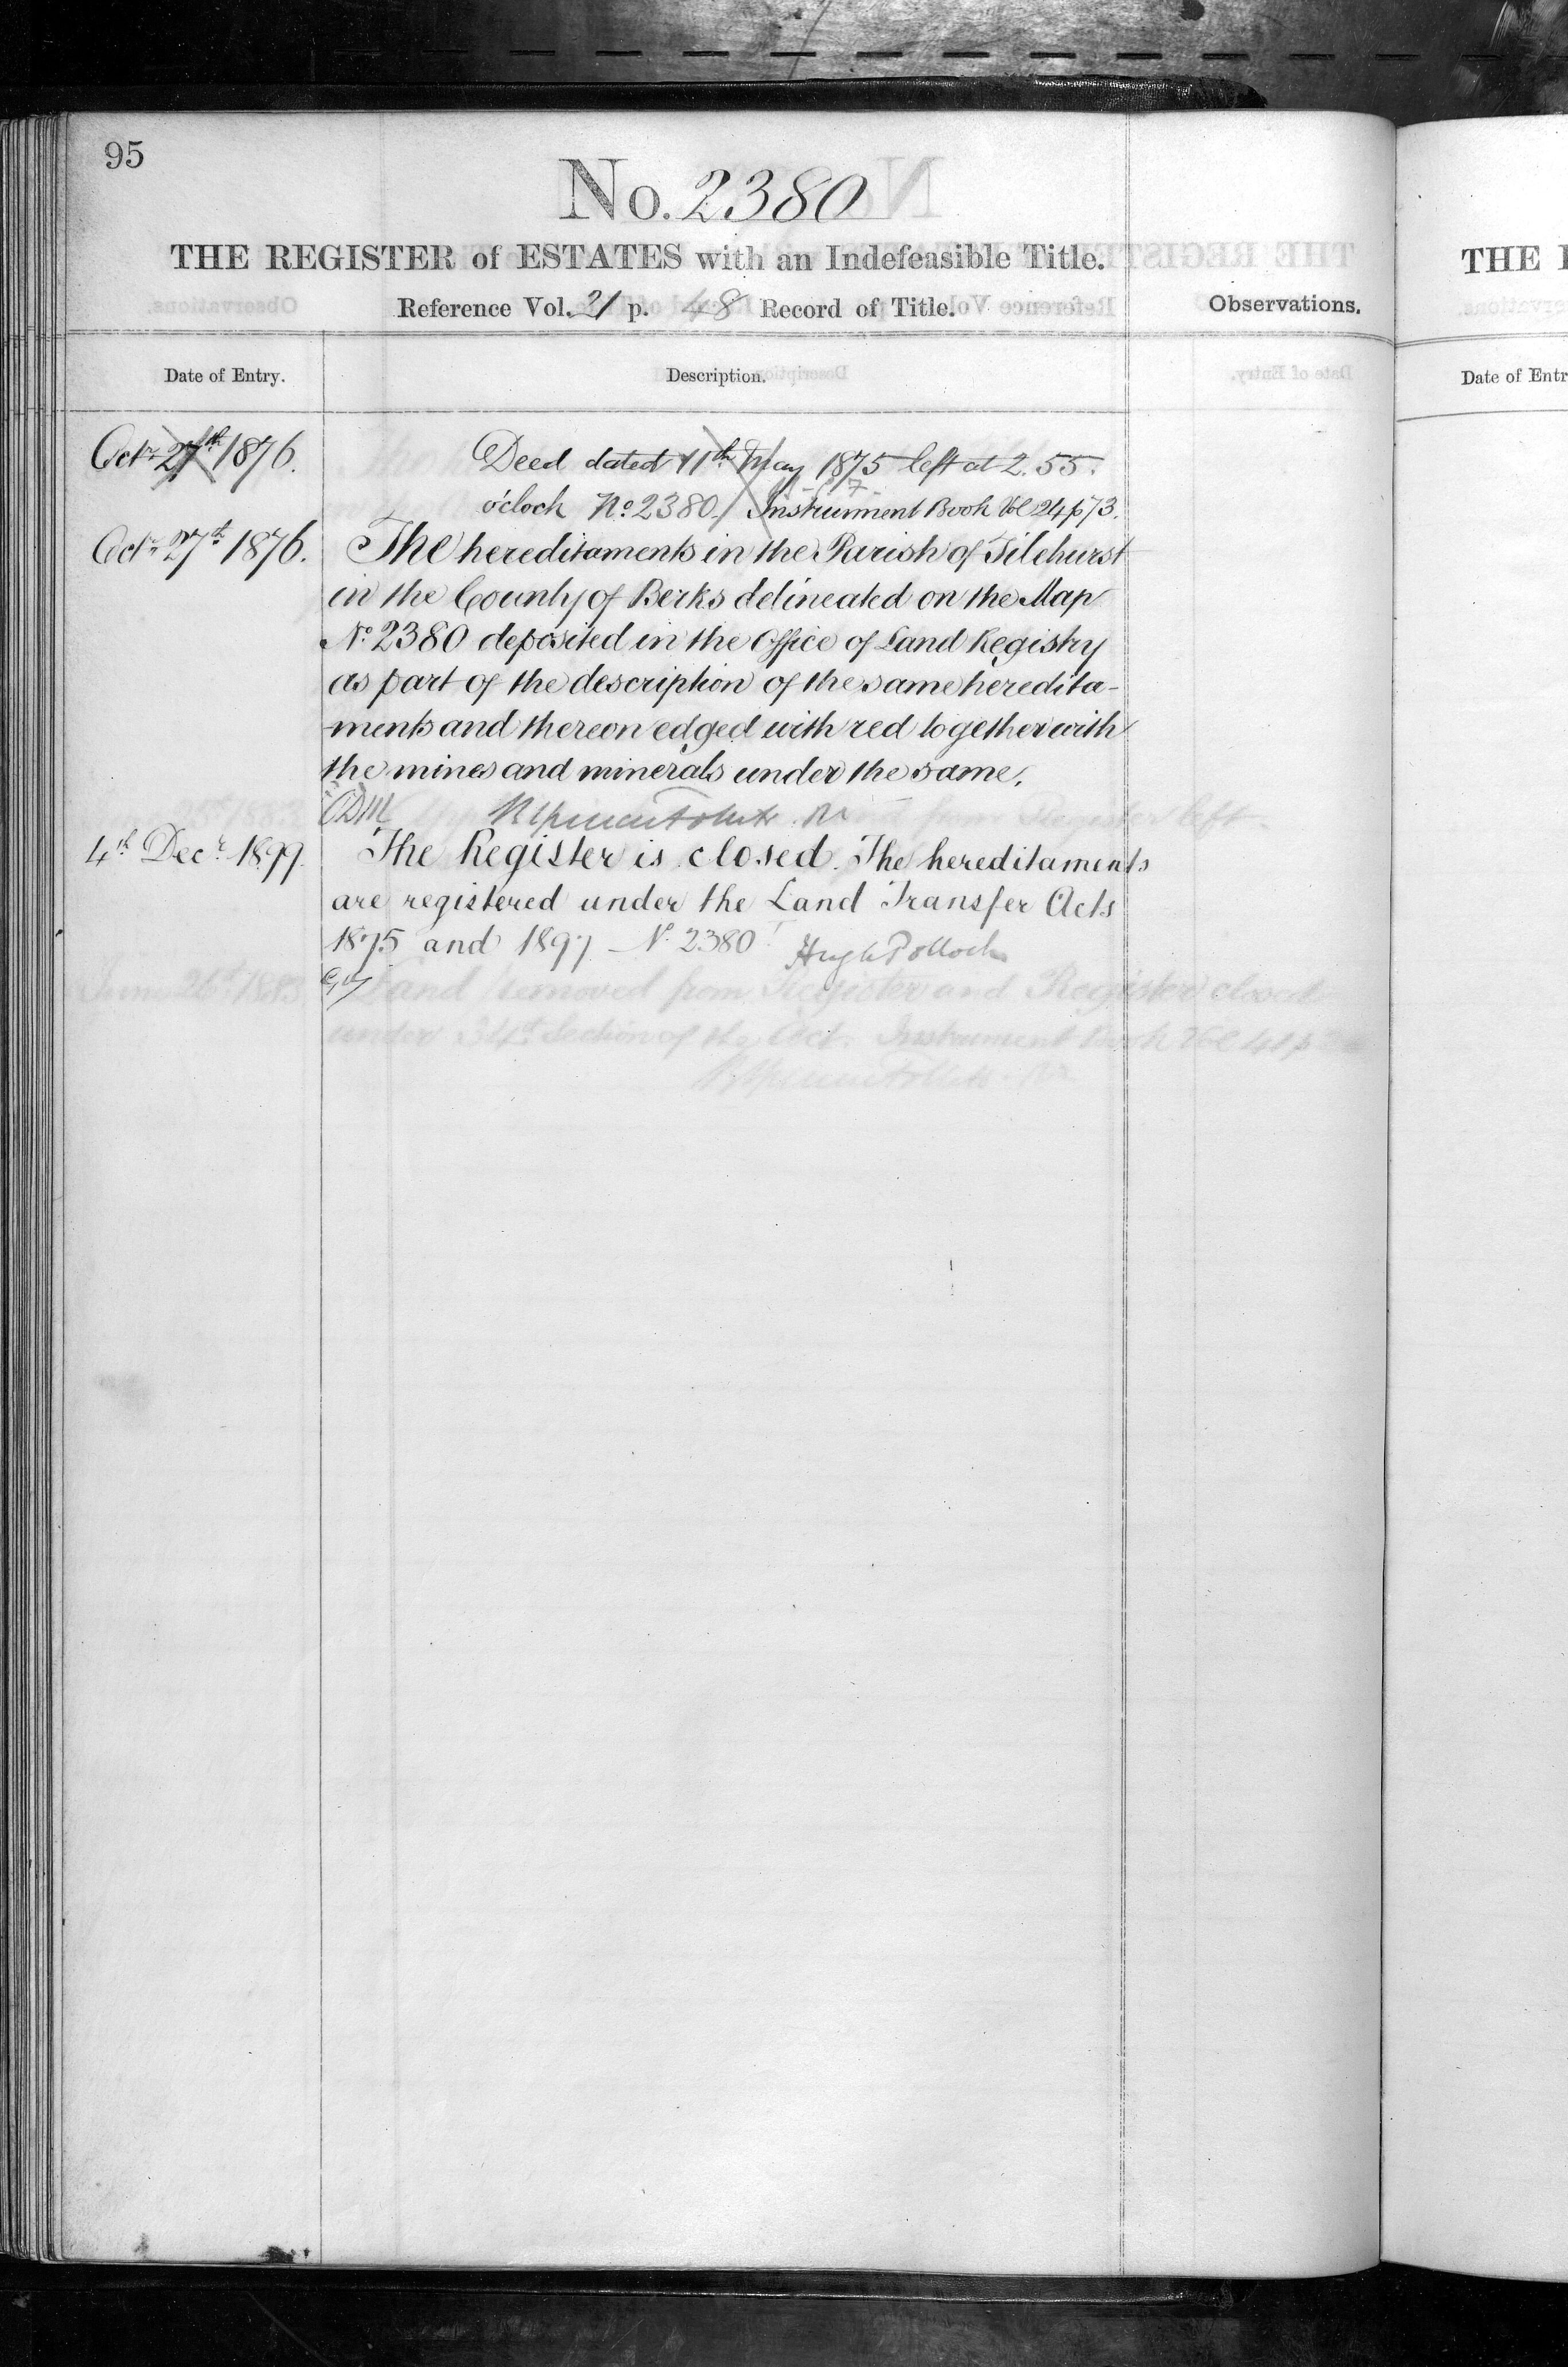 95
No. 2380
THE REGISTER of ESTATES with an Indefeasible Title.
Reference Vol. 21 p. 48 Record of Title.
Observations.
Date of Entry.
Description.
Octr 27th 1876.
Deed dated 11th May 1875 left at 2.55.
o'clock No 2380 / Instrument Book Vol 24 p 73.
Octr 27th 1876.
The hereditaments in the Parish of Tilehurst
in the County of Berks delineated on the Map
No 2380 deposited in the Office of Land Registry
as part of the description of the same heredita-
ments and thereon edged with red together with
the mines and minerals under the same.
4th Decr 1899.
The Register is closed. The hereditaments
are registered under the Land Transfer Acts
1875 and 1897 No 2380
Hugh Pollock
June 26th 1883
Land removed from Register and Register closed
under 34th Section of the Act. Instrument Book Vol 41 p
THE
Date of Entr